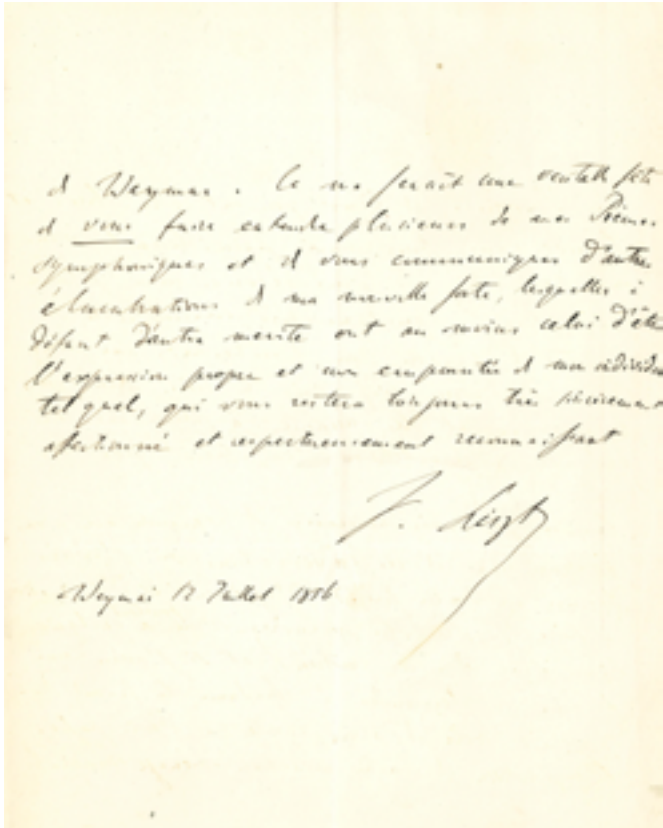 de Weymar. Ce me serait une véritable fête
de vous faire entendre plusieurs de mes Poèmes
symphoniques et de vous communiquer d'autres
élucubrations de ma nouvelle sorte, lesquelles à
défaut d'autre mérite ont au moins celui d'être
l'expression propre et non empruntée de mon individu
tel quel, qui vous restera toujours très sincèrement
affectionné et respectueusement reconnaissant
F. Liszt
Weymar 12 Juillet 1856